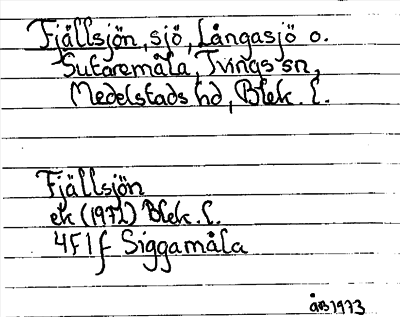 Fjällsjön, sjö, Långasjö o.
Sutaremåla, Tvings sn,
Medelstads hd, Blek. l.
Fjällsjön
ek (1972) Blek. l.
4F1f Siggamåla
ÅB 1973